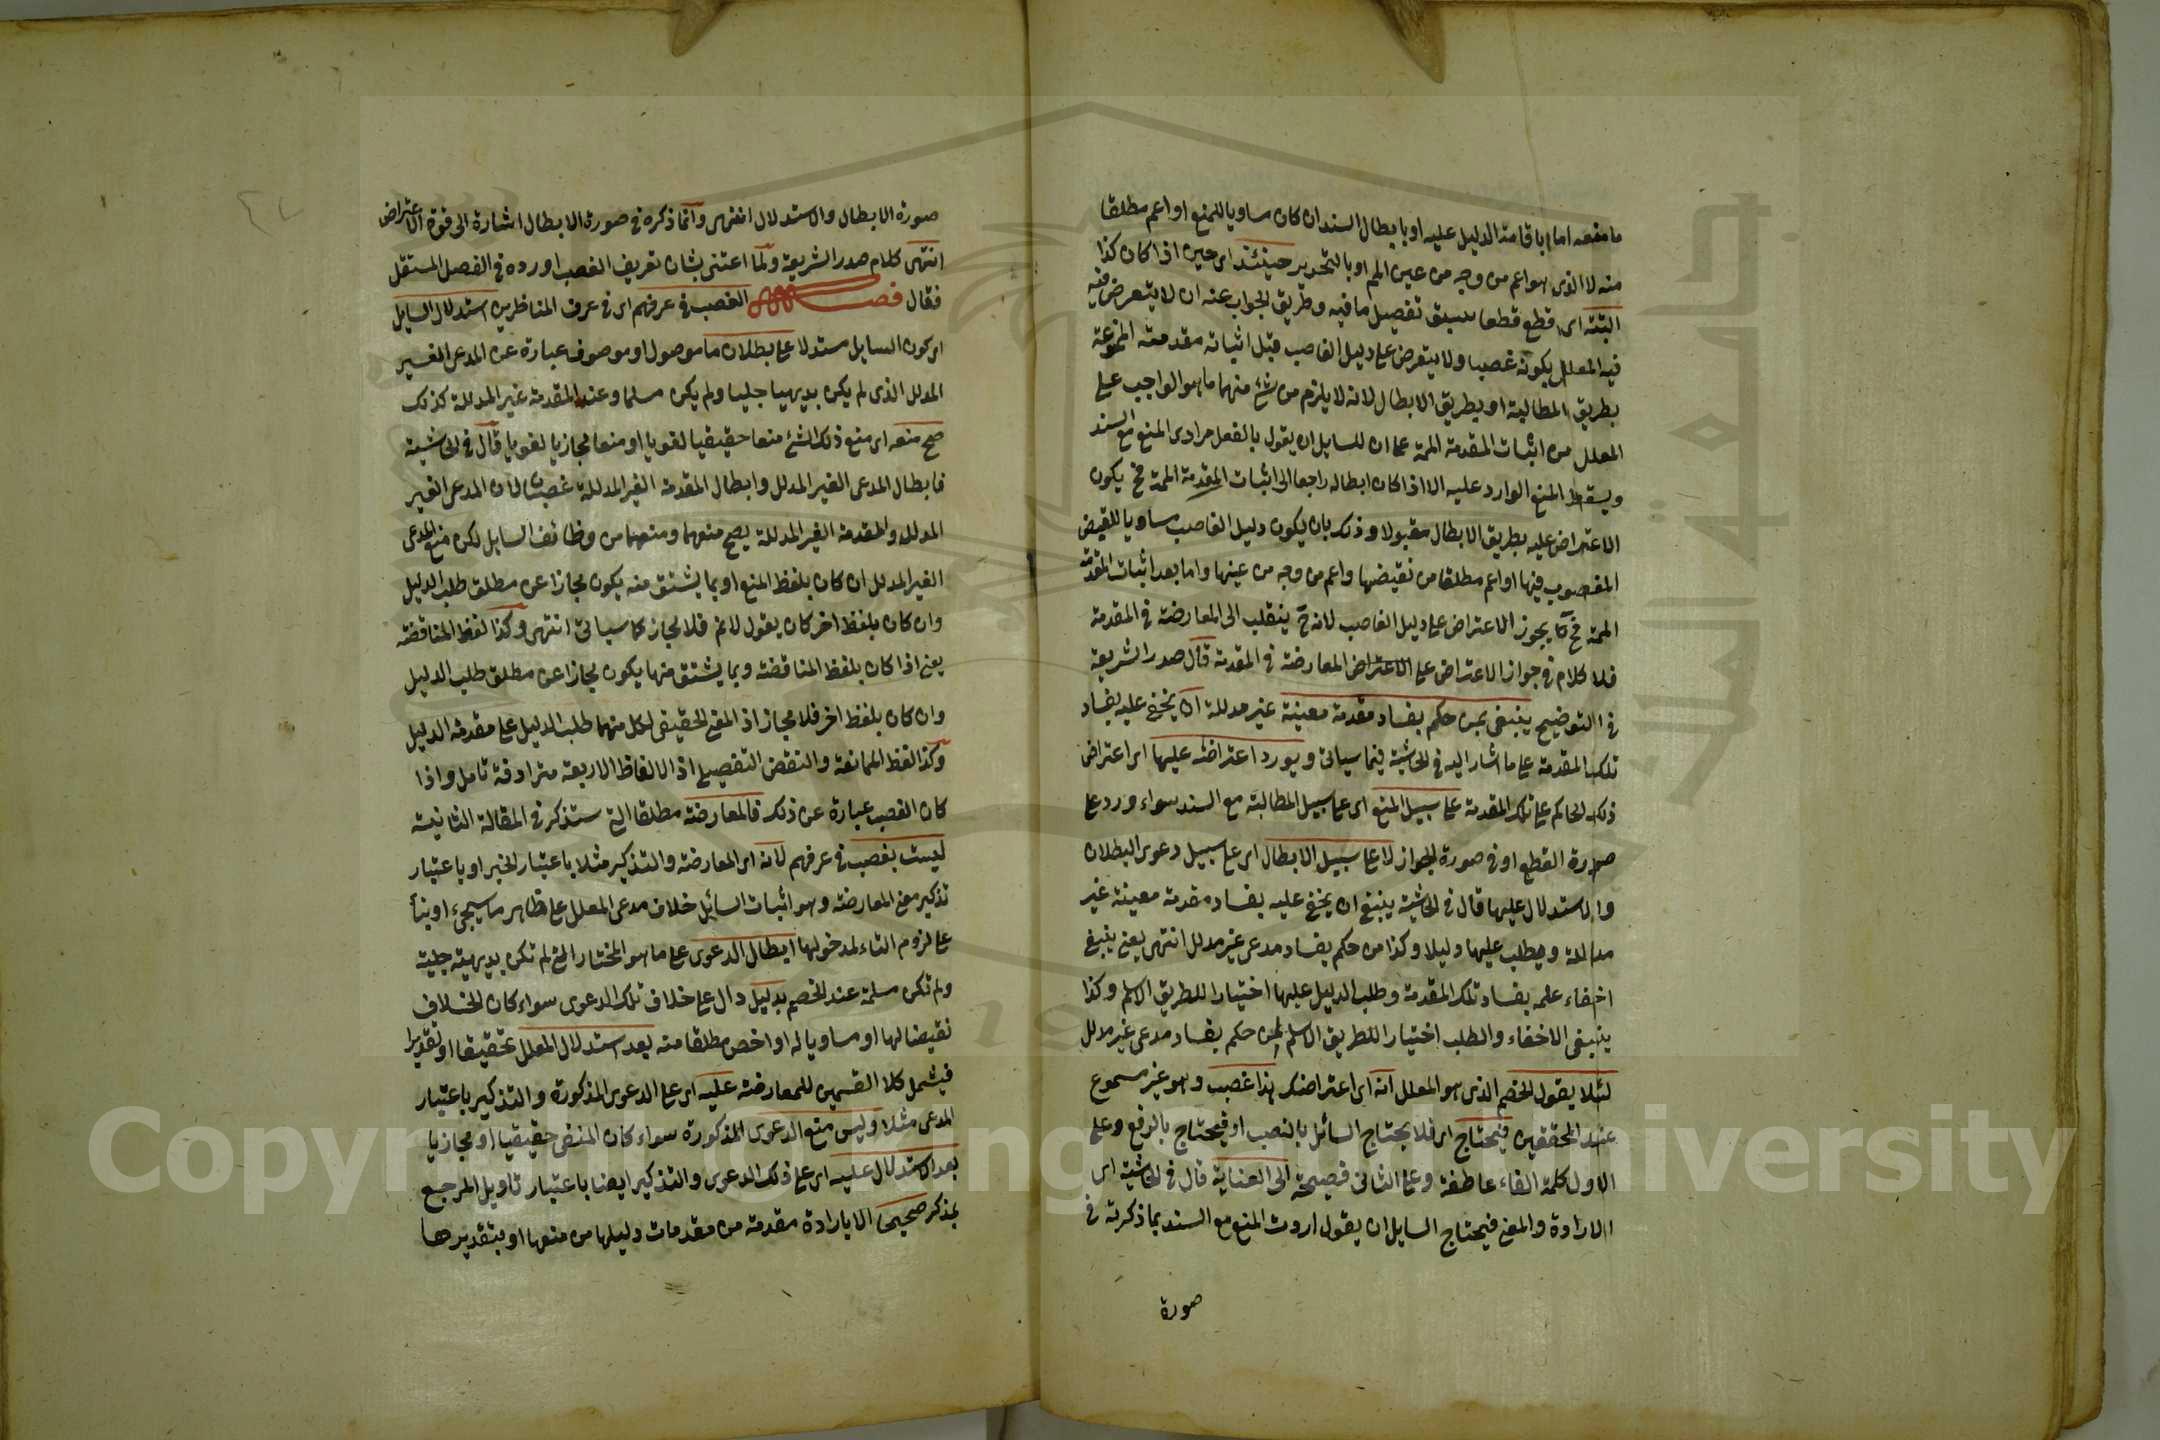 ما منعه اما باقامة الدليل عليه او بابطال السند ان كان مساويا للمنع او اعم مطلقا
منه لا الذى هو اعم من وجه من عين المم او بالتحرير حينئذ اى حين اذا كان كذا
البتة اى قطع قطعا سبق تفصيل ما فيه وطريق الجواب عنه ان لا يتعرض فيه
فيه المعلل بكونه غصبا ولا يتعرض على دليل الغاصب قبل اثباته مقدمته الممنوعة
بطريق المطالبة او بطريق الابطال لانه لا يلزم من شئ منهما ما هو الواجب على
المعلل من اثبات المقدمة الممة على ان للسايل ان يقول بالفعل مرادى المنع مع السند
ويسقط المنع الوارد عليه الا اذا كان ابطاله راجعا الى اثبات المقدمة الممة فح يكون
الاعتراض عليه بطريق الابطال مقبولا وذلك بان يكون دليل الغاصب مساويا للنقيض
المغصوب فيها او اعم مطلقا من نقيضها واعم من وجه من عينها واما بعد اثبات المقدمة
الممة فح يجوز الاعتراض على دليل الغاصب لانه ح ينقلب الى المعارضة فى المقدمة
فلا كلام فى جواز الاعتراض على الاعتراض المعارضة فى المقدمة قال صدر الشريعة
فى التوضيح ينبغى لمن حكم بفساد مقدمة معينة غير مدللة ان يخفى عليه بفساد
تلك المقدمة على ما اشار اليه فى الحاشية فيما سياتى ويورد اعتراضه عليها اى اعتراض
ذلك الحاكم على تلك المقدمة على سبيل المنع اى على سبيل المطالبة مع السند سواء ورد على
صورة القطع او فى صورة الجواز لا على سبيل الابطال اى على سبيل دعوى البطلان
والاستدلال عليها قال فى الحاشية ينبغى ان يخفى عليه بفساد مقدمة معينة غير
مدللة ويطلب عليها دليلا وكذا من حكم بفساد مدعى غير مدلل انتهى يعنى ينبغى
اخفاء علمه بفساد تلك المقدمة وطلب الدليل عليها اختيارا للطريق الاسلم وكذا
ينبغى الاخفاء والطلب اختيارا للطريق الاسلم لمن حكم بفساد مدعى غير مدلل
لئلا يقول الخصم الذى هو المعلل انه اى اعتراضك هذا غصب وهو غير مسموع
عند المحققين فيحتاج اى فلا يحتاج السائل بالنصب او فيحتاج بالرفع وعلى
الاول كلمة الفاء عاطفة وعلى الثانى فصيحة الى العناية قال فى الحاشية اى
الارادة والمعنى فيحتاج السايل ان يقول اردت المنع مع السند بما ذكرته فى
صورة
صورة الابطال والاستدلال انتهى وانما ذكره فى صورة الابطال اشارة الى قوة الاعتراض
انتهى كلام صدر الشريعة ولما اعتنى بشان تعريف الغصب اورده فى الفصل المستقل
فقال فصل الغصب فى عرفهم اى فى عرف المناظرين استدلال السايل
اى كون السايل مستدلا على بطلان ما موصول او موصوف عبارة عن المدعى الغير
المدلل الذى لم يكن بديهيا جليا ولم يكن مسلما وعند المقدمة غير المدللة كذلك
صح منعه اى منع ذلك الشئ منعا حقيقيا لغويا او منعا مجازيا لغويا قال فى الحاشية
فابطال المدعى الغير المدلل وابطال المقدمة الغير المدللة غصبان لان المدعى الغير
المدلل والمقدمة الغير المدللة يصح منعهما ومنعهما من وظائف السايل لكن منع المدعى
الغير المدلل ان كان بلفظ المنع او بما يشتق منه يكون مجازا عن مطلق طلب الدليل
وان كان بلفظ اخر كان يقول لانم فلا مجاز كما سياتى انتهى وكذا لفظ المناقضة
يعنى اذا كان بلفظ المناقضة وبما يشتق منها يكون مجازا عن مطلق طلب الدليل
وان كان بلفظ اخر فلا مجاز اذ المعنى الحقيقى لكل منهما طلب الدليل على مقدمة الدليل
وكذا لفظ الممانعة والنقض التفصيلى اذ الالفاظ الاربعة مترادفة تامل واذا
كان الغصب عبارة عن ذلك فالمعارضة مطلقا التى ستذكر فى المقالة الثانية
ليست بغصب فى عرفهم لانه اى المعارضة والتذكير مثلا باعتبار الخبر او باعتبار
تذكير معنى المعارضة وهو اثبات السايل خلاف مدعى المعلل على ظاهر ما سيجئ او بنأ
على لزوم التاء لمدخولها ابطال الدعوى على ما هو المختار التى لم تكن بديهية جلية
ولم تكن مسلمة عند الخصم بدليل دال على خلاف تلك الدعوى سواء كان الخلاف
نقيضا لها او مساويا له او اخص مطلقا منه بعد استدلال المعلل تحقيقا او تقديرا
فيشمل كلا القسمين للمعارضة عليه اى على الدعوى المذكورة والتذكير باعتبار
المدعى مثلا وليس منع الدعوى المذكورة سواء كان المنفى حقيقيا او مجازيا
بعد الاستدلال عليه اى على ذلك الدعوى والتذكير ايضا باعتبار تاويل المرجع
بمذكر صحيحا الا بارادة مقدمة من مقدمات دليلها من منعها او بتقديرها